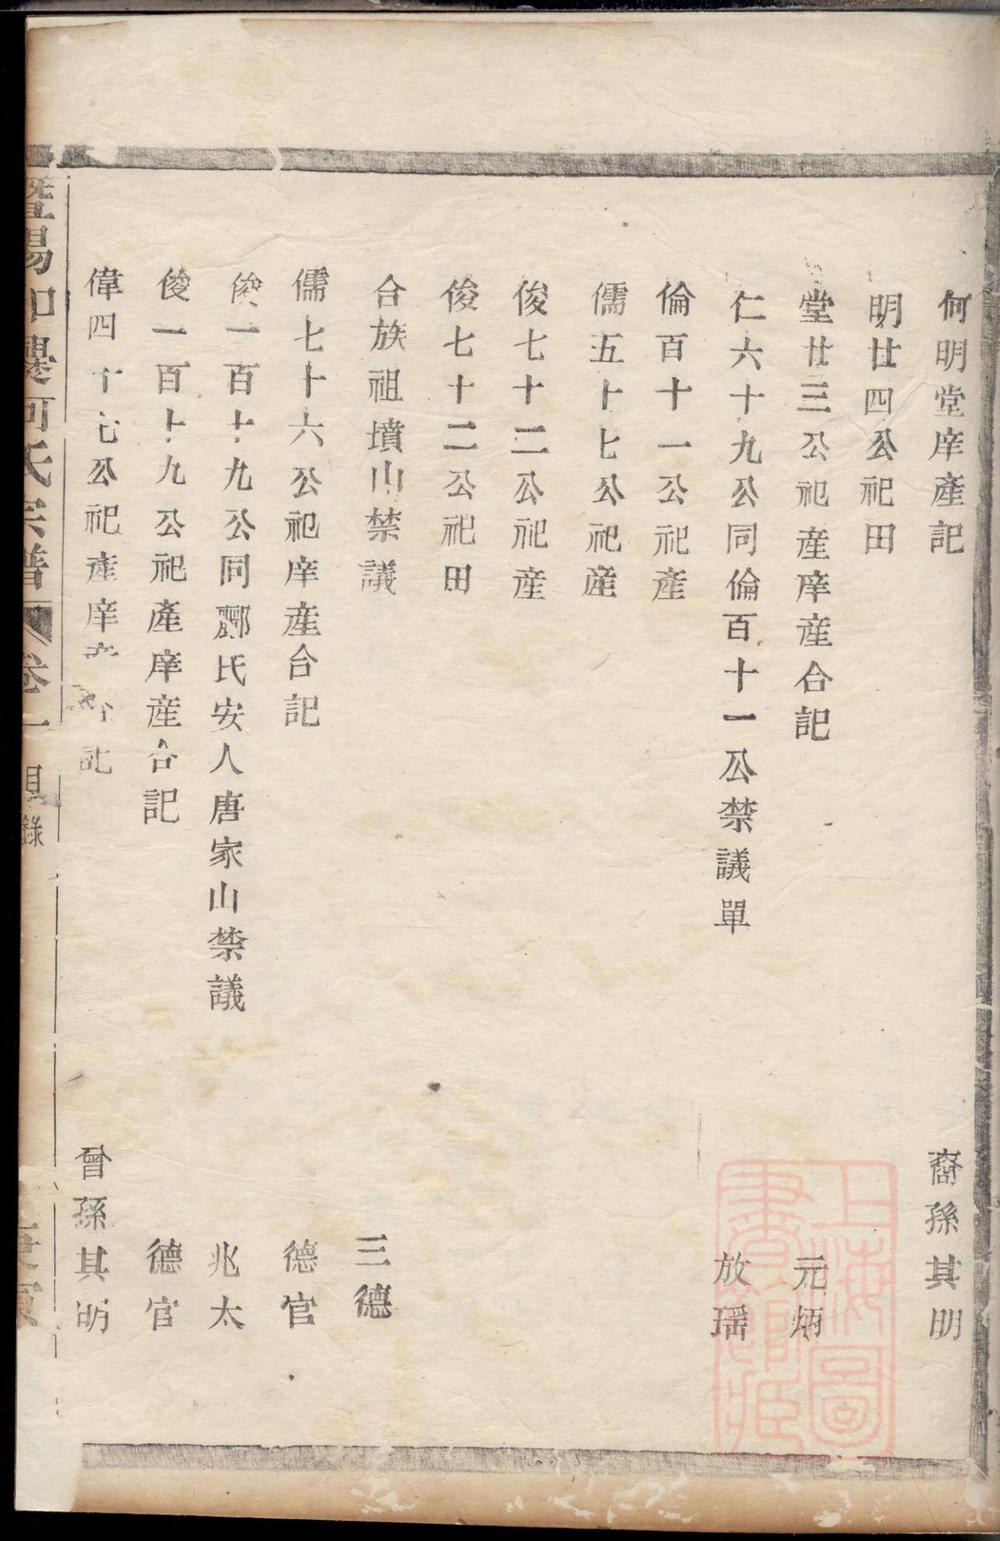 何明堂庠產記 裔孫其明
明廿四公祀田
堂廿三公祀產庠產合記 元炳
仁六十九公同倫百十一公禁議單 放瑶
倫百十一公祀產
儒五十七公祀產
俊七十二公祀產
俊七十二公祀田
合族祖墳山禁議 三德
儒七十六公祀庠產合記 德官
俊一百十九公同酈氏安人唐家山禁議 兆太
俊一百十九公祀產庠產合記 德官
偉四十七公祀產庠產合記 曾孫其明
暨陽 何氏宗譜 卷一 目錄 庚寅
上海圖書館藏